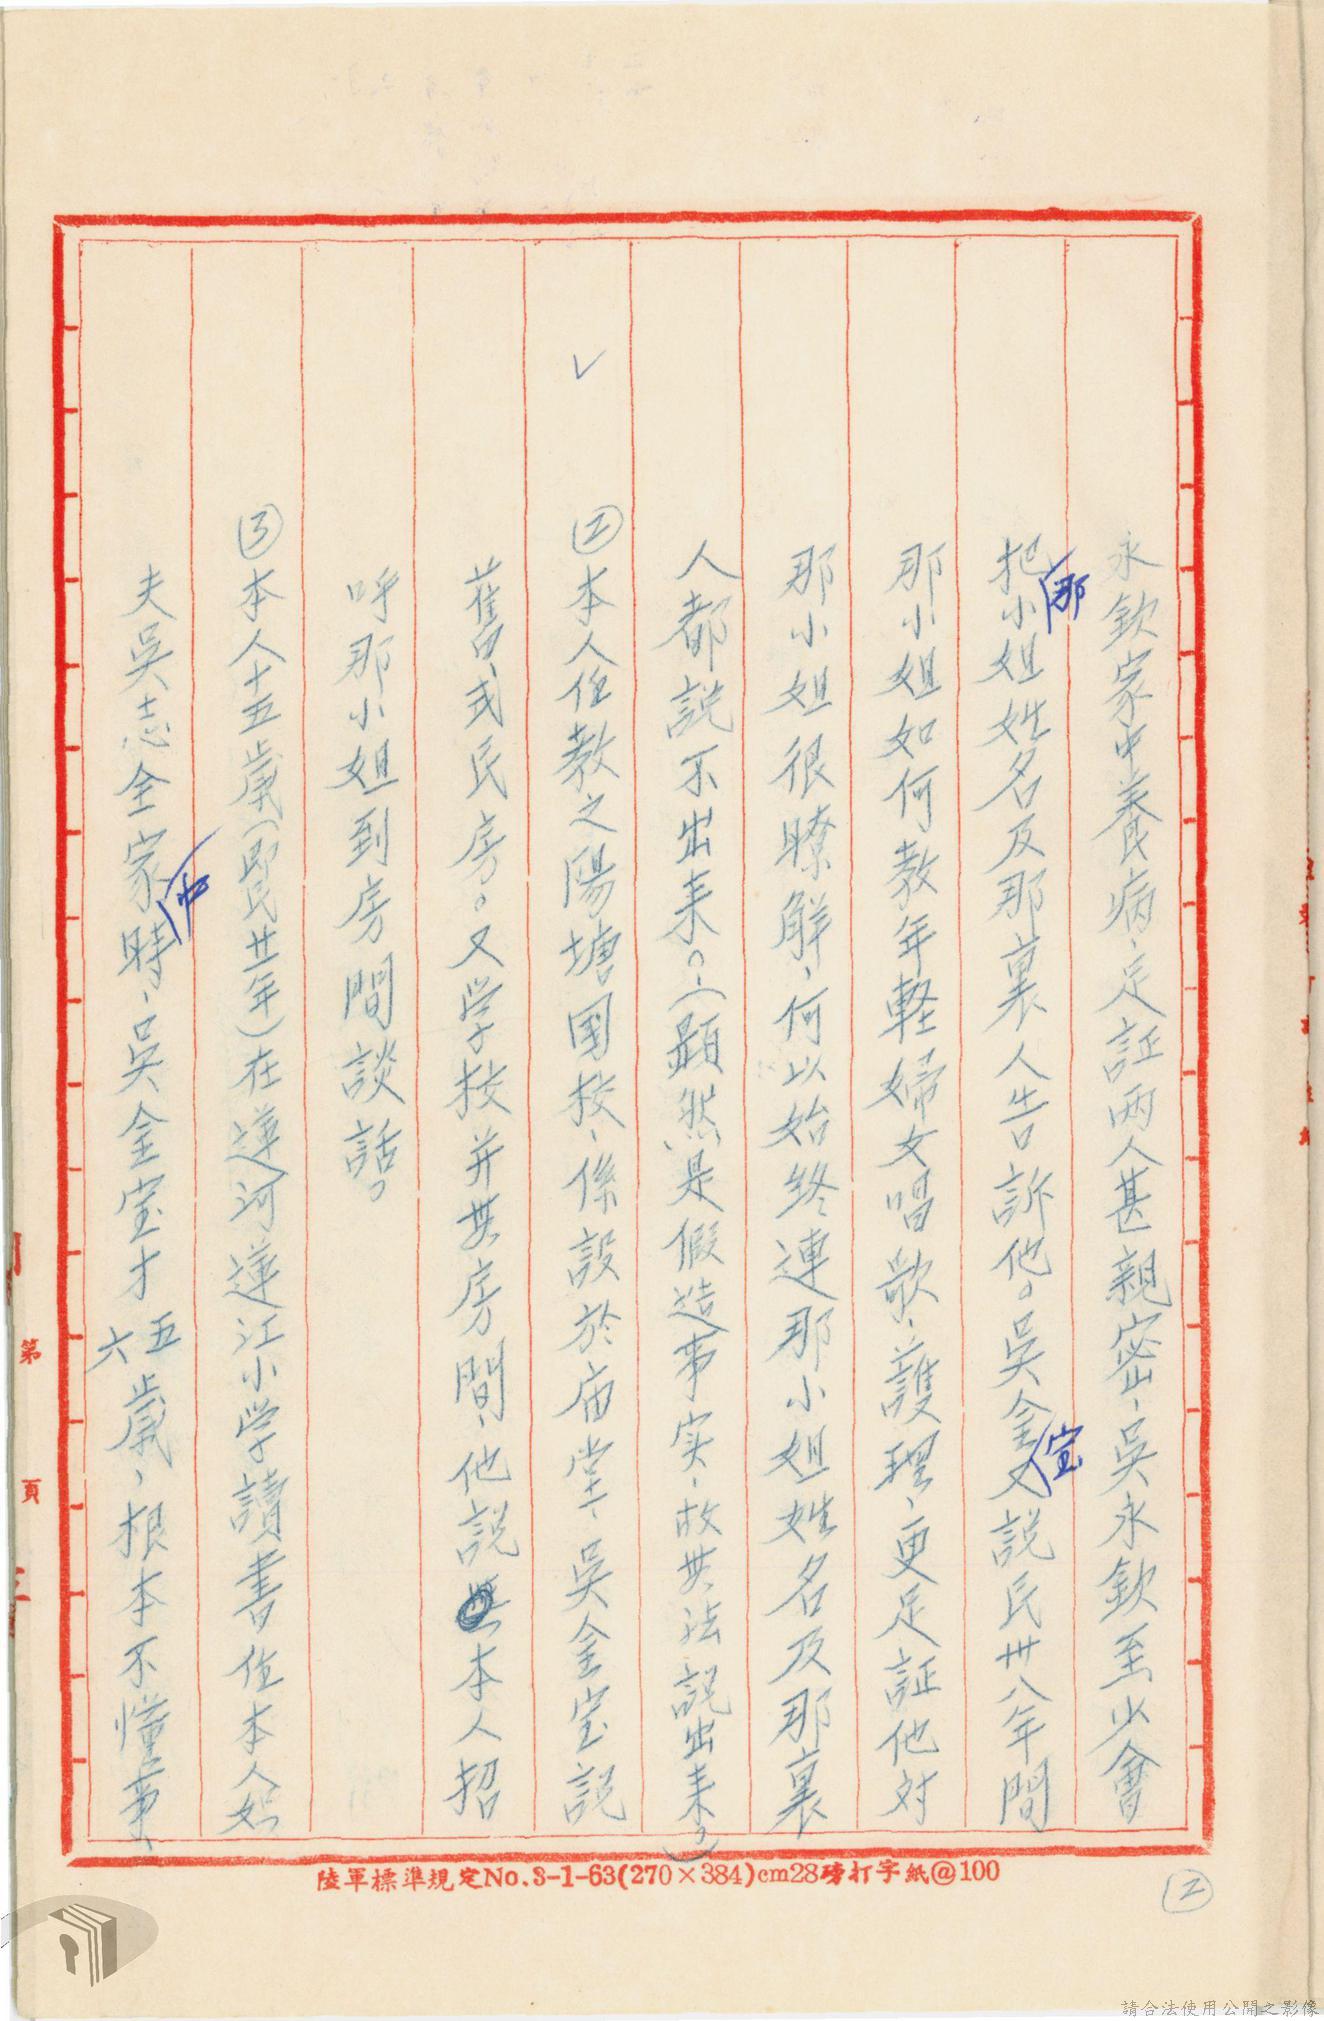 永欽家中養病、足証两人甚親密、吳永欽至少會
把那小姐姓名及那裏人告訴他。吳金宝又說民卅八年間
那小姐如何教年軽婦女唱歌、護理、更足証他対
那小姐很瞭解、何以始終連那小姐姓名及那裏
人都説不出来。(顕然是假造事实、故無法説出来。)
✓
②本人任教之陽塘国校、係設於庙堂、吳金宝說
舊式民房。又学校并無房間、他説本人招
呼那小姐到房間談話。
③本人十五歲(即民廿年)在蓮河蓮江小学讀書住本人姑
夫吳志全家中時、吳金宝才五六歲、根本不懂事
陸軍標準規定No.3-1-63(270×384)cm28磅打字紙@100
②
第 頁
請合法使用公開之影像